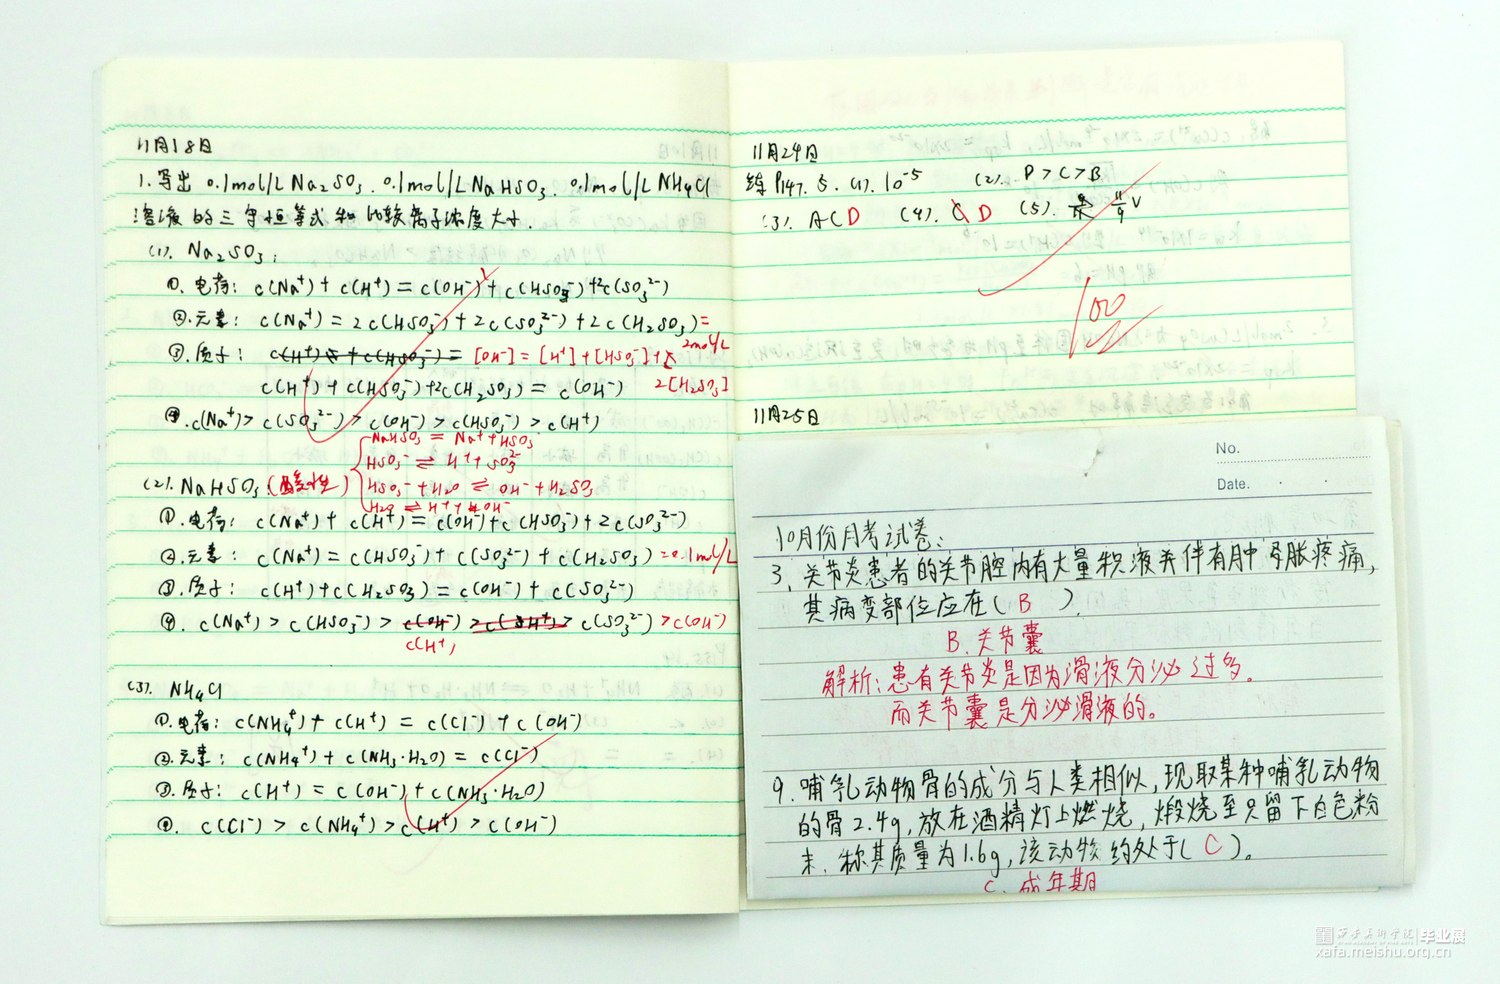 11月18日
1.写出 0.1mol/L Na₂SO₃. 0.1mol/L NaHSO₃. 0.1mol/L NH₄Cl
溶液的三守恒等式和比较离子浓度大小.
(1). Na₂SO₃:
①.电荷: c(Na⁺)+c(H⁺)=c(OH⁻)+c(HSO₃⁻)+2c(SO₃²⁻)
②.元素: c(Na⁺)=2c(HSO₃⁻)+2c(SO₃²⁻)+2c(H₂SO₃)=
2mol/L
③.质子: c(H⁺) + c(HSO₃⁻)= [OH⁻]=[H⁺]+[HSO₃⁻]+
2[H₂SO₃]
c(H⁺)+c(HSO₃⁻)+2c(H₂SO₃)=c(OH⁻)
④.c(Na⁺)>c(SO₃²⁻)>c(OH⁻)>c(HSO₃⁻)>c(H⁺)
NaHSO₃=Na⁺+HSO₃⁻
HSO₃⁻⇌H⁺+SO₃²⁻
(2). NaHSO₃:(酸性) HSO₃⁻+H₂O⇌OH⁻+H₂SO₃
H₂O⇌H⁺+OH⁻
①.电荷: c(Na⁺)+c(H⁺)=c(OH⁻)+c(HSO₃⁻)+2c(SO₃²⁻)
②.元素: c(Na⁺)=c(HSO₃⁻)+c(SO₃²⁻)+c(H₂SO₃)=0.1mol/L
③.质子: c(H⁺)+c(H₂SO₃)=c(OH⁻)+c(SO₃²⁻)
④. c(Na⁺)>c(HSO₃⁻)>c(OH⁻)>c(H⁺)>c(SO₃²⁻)>c(OH⁻)
c(H⁺)
(3). NH₄Cl
①.电荷: c(NH₄⁺)+c(H⁺)=c(Cl⁻)+c(OH⁻)
②.元素: c(NH₄⁺)+c(NH₃·H₂O)=c(Cl⁻)
③.质子: c(H⁺)=c(OH⁻)+c(NH₃·H₂O)
④. c(Cl⁻)>c(NH₄⁺)>c(H⁺)>c(OH⁻)
11月24日
练P147. 5. (1). 10⁻⁵ (2). P>C>B
(3). ACD (4). C D (5). 11/9 V
100
11月25日
No.
Date.
10月份月考试卷:
3. 关节炎患者的关节腔内有大量积液并伴有肿胀疼痛,
其病变部位应在( B ).
B.关节囊
解析:患有关节炎是因为滑液分泌过多。
而关节囊是分泌滑液的。
9.哺乳动物骨的成分与人类相似,现取某种哺乳动物
的骨2.4g,放在酒精灯上燃烧,煅烧至只留下白色粉
末.称其质量为1.6g,该动物约处于( C )。
C.成年期
西安美术学院 毕业展
xafa.meishu.org.cn